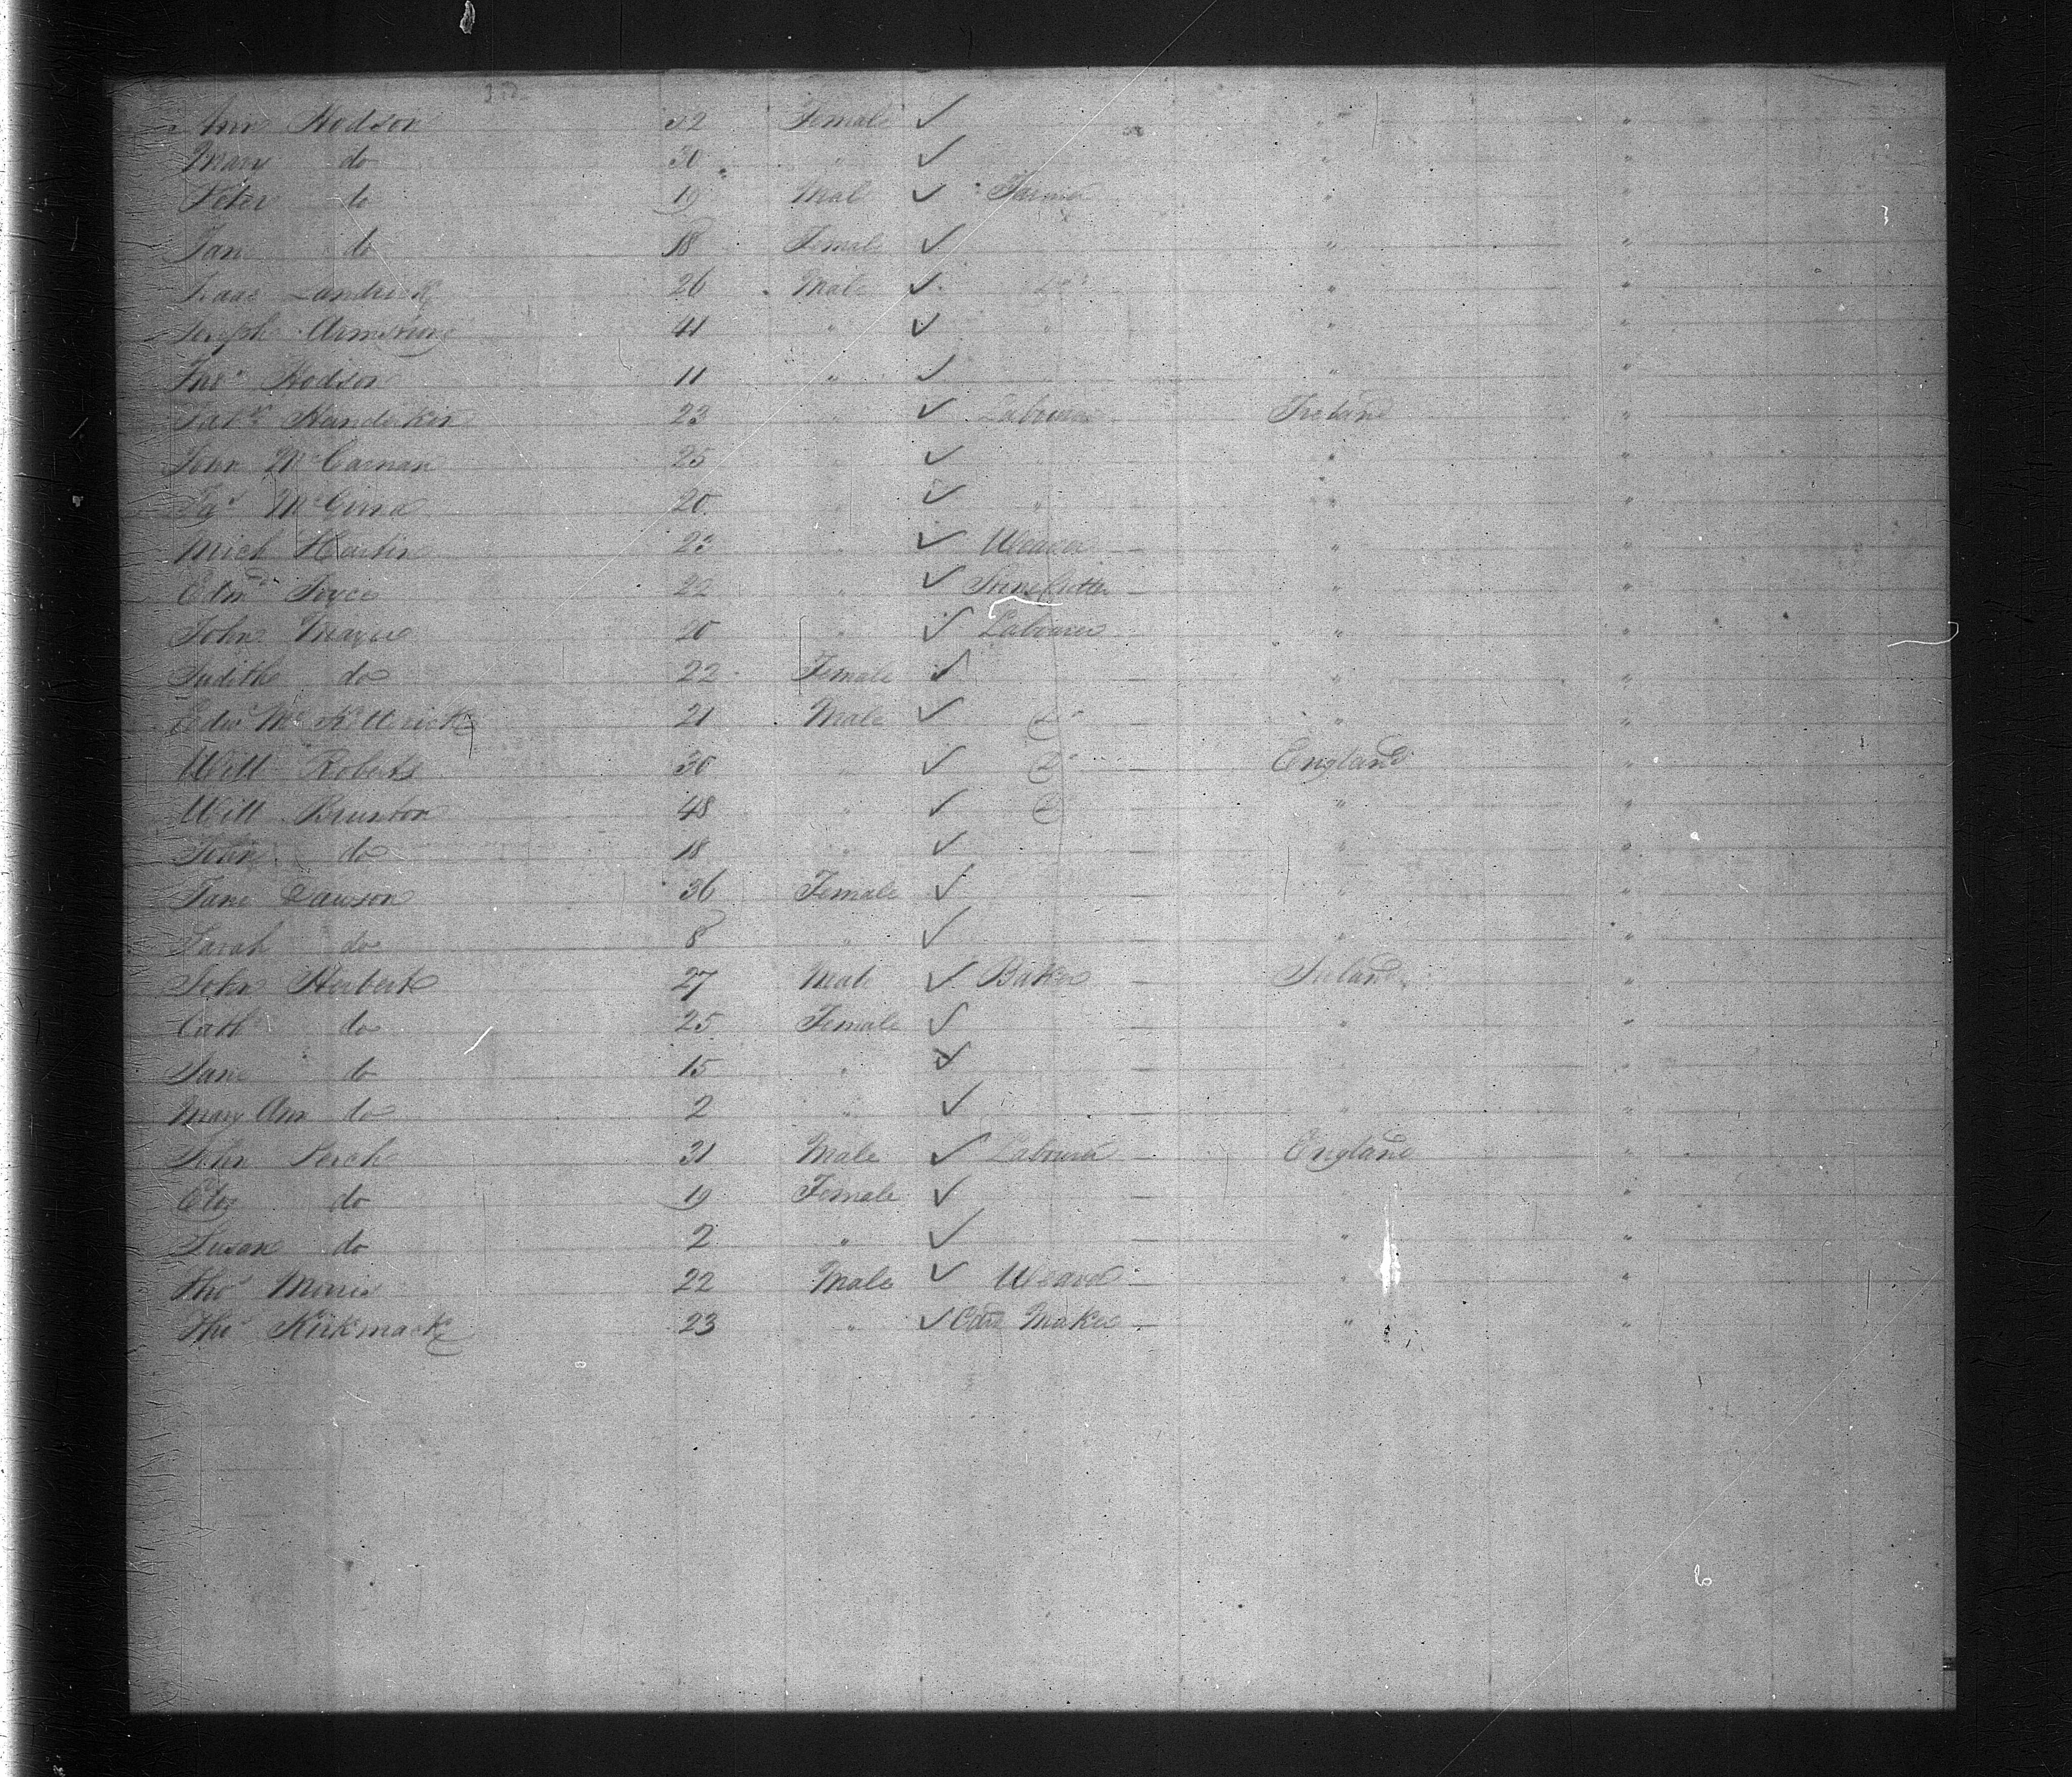 Ann Hodson 32 Female ✓ " "
Mary do 30 " ✓ " "
Peter do 19 Male ✓ Farmer " "
Jane do 18 Female ✓ " "
Isaac Landrick 26 Male ✓ Do " "
Joseph Armstrong 41 " ✓ " " "
Thos Hodson 11 " ✓ " "
Patk 23 " ✓ Labourer Ireland "
John 25 " ✓ " " "
20 " ✓ " " "
Mich Martin 23 " ✓ Weaver — " "
Edwd Joyce 22 " ✓ Stone Cutter — " "
John 20 " ✓ Labourer — " "
Judith do 22 Female ✓ — " "
Edwd McKittrick 21 Male ✓ Do " "
Will Roberts 30 " ✓ Do — England "
Will Brunton 48 " ✓ Do — " "
John do 18 " ✓ — " "
Jane Dawson 36 Female ✓ " "
Sarah do 8 " ✓ — " "
John Herbert 27 Male ✓ Baker — Ireland "
Cath do 25 Female ✓ — " "
Jane do 15 " ✓ — " "
Mary Ann do 2 " ✓ — " "
John 31 Male ✓ Labourer — England "
Eliz do 19 Female ✓ — " "
Susan do 2 " ✓ — " "
Thos Morris 22 Male ✓ Weaver — " "
Thos 23 " ✓ Maker — " "